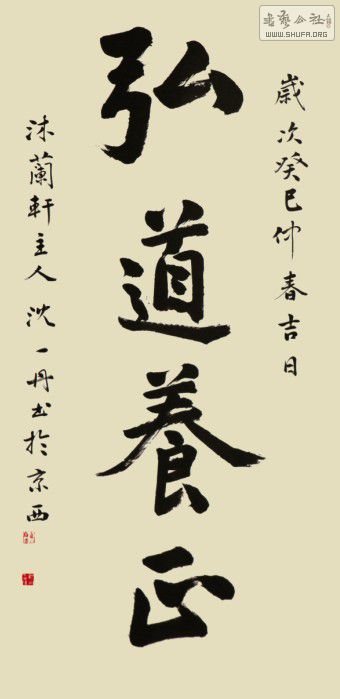 歲次癸巳仲春吉日
弘道養正
沐蘭軒主人沈一丹書於京西
書藝公社
WWW.SHUFA.ORG